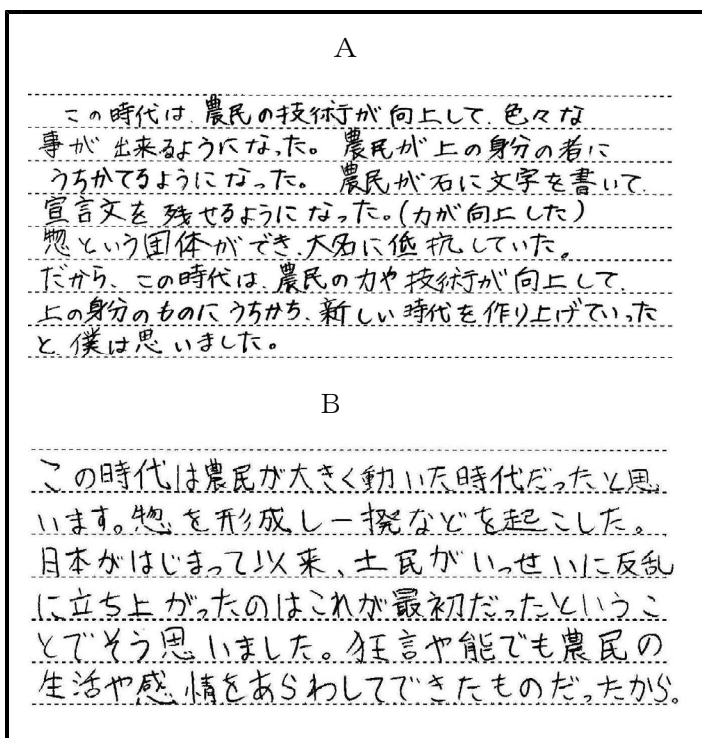 A
この時代は、農民の技術が向上して、色々な
事が出来るようになった。農民が上の身分の者に
うちかてるようになった。農民が石に文字を書いて
宣言文を残せるようになった。(力が向上した)
惣という団体ができ、大名に低抗していた。
だから、この時代は、農民の力や技術が向上して、
上の身分のものにうちかち、新しい時代を作り上げていった
と、僕は思いました。
B
この時代は農民が大きく動いた時代だったと思
います。惣を形成し一揆などを起こした。
日本がはじまって以来、土民がいっせいに反乱
に立ち上がったのはこれが最初だったというこ
とでそう思いました。狂言や能でも農民の
生活や感情をあらわしてできたものだったから。